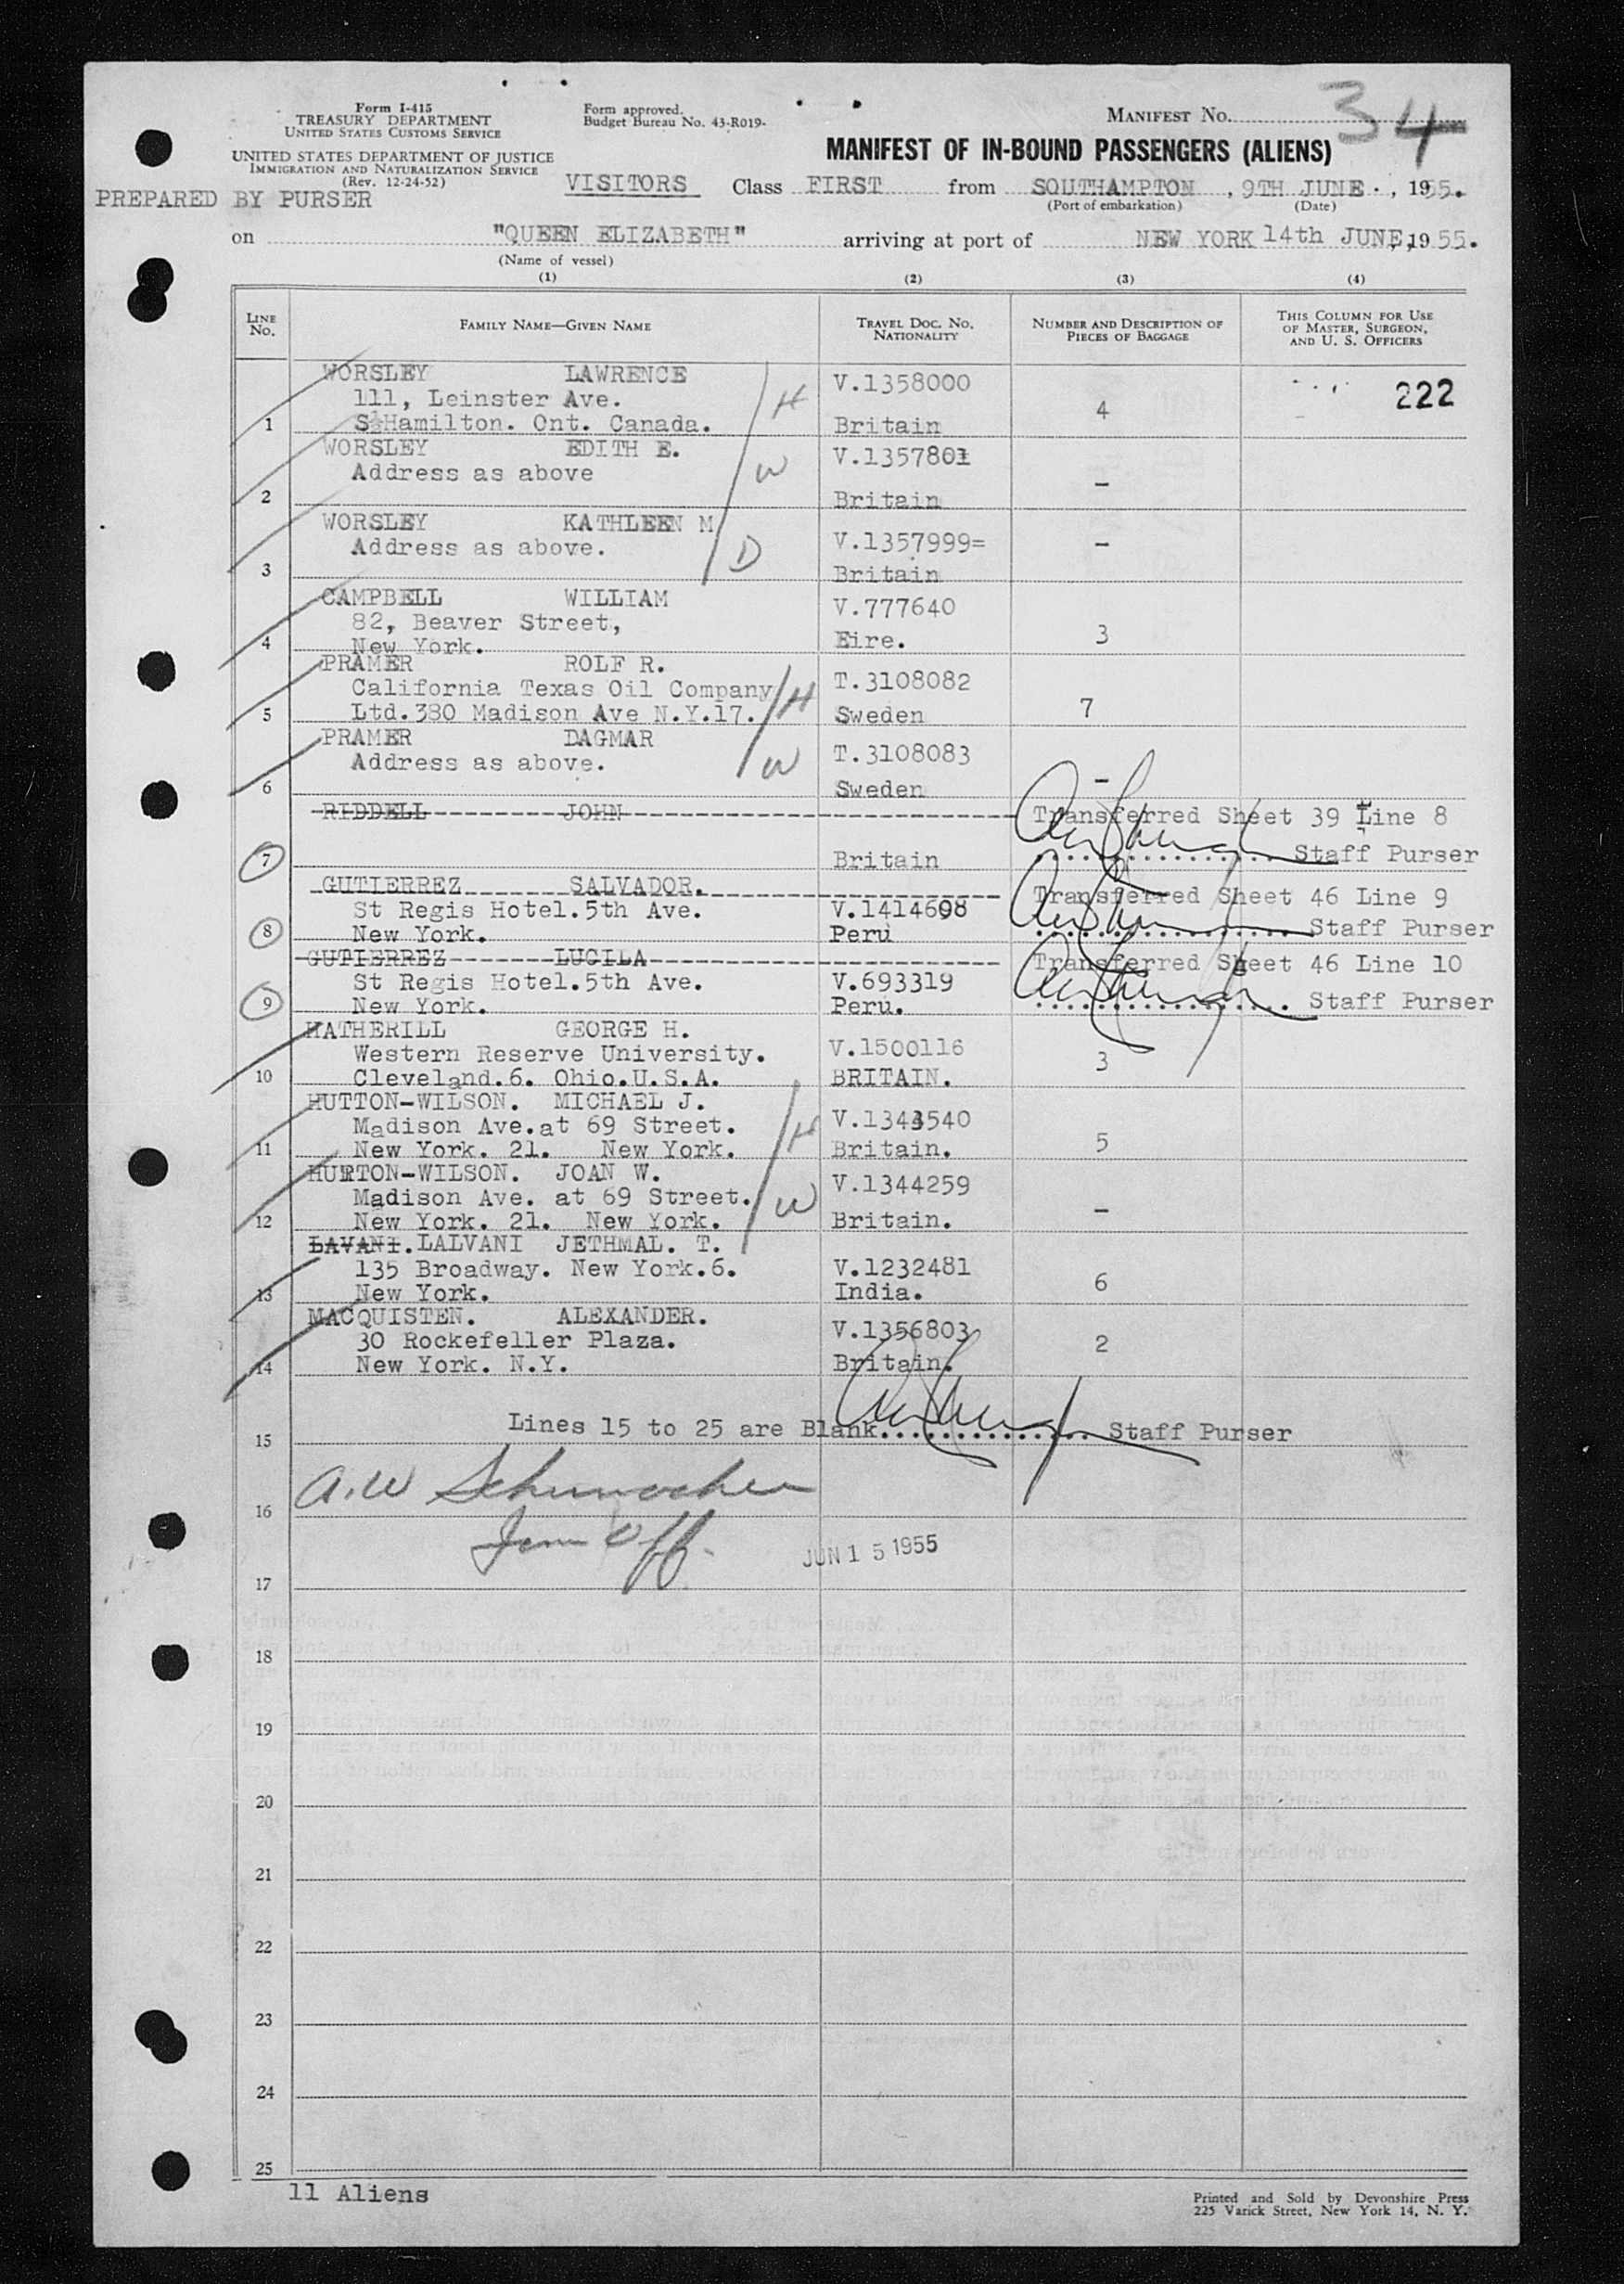 Form I-415
TREASURY DEPARTMENT
UNITED STATES CUSTOMS SERVICE
UNITED STATES DEPARTMENT OF JUSTICE
IMMIGRATION AND NATURALIZATION SERVICE
(Rev. 12-24-52)
PREPARED BY PURSER
Form approved.
Budget Bureau No. 43-R019.
MANIFEST NO. 34
MANIFEST OF IN-BOUND PASSENGERS (ALIENS)
VISITORS Class FIRST from SOUTHAMPTON, 9TH JUNE., 1955.
(Port of embarkation) (Date)
on "QUEEN ELIZABETH" arriving at port of NEW YORK 14th JUNE, 1955.
(Name of vessel)
(1) (2) (3) (4)
LINE NO. FAMILY NAME—GIVEN NAME TRAVEL DOC. NO. NATIONALITY NUMBER AND DESCRIPTION OF PIECES OF BAGGAGE THIS COLUMN FOR USE OF MASTER, SURGEON, AND U. S. OFFICERS
WORSLEY LAWRENCE V.1358000 222
111, Leinster Ave. H 4
1 S½Hamilton. Ont. Canada. Britain
WORSLEY EDITH E. V.1357801
Address as above W
2 Britain -
WORSLEY KATHLEEN M
Address as above. D V.1357999= -
3 Britain
CAMPBELL WILLIAM V.777640
82, Beaver Street,
4 New York. Eire. 3
PRAMER ROLF R.
California Texas Oil Company H T.3108082
5 Ltd.380 Madison Ave N.Y.17. Sweden 7
PRAMER DAGMAR
Address as above. W T.3108083 -
6 Sweden
RIDDELL JOHN Transferred Sheet 39 Line 8
7 Britain Staff Purser
GUTIERREZ SALVADOR. Transferred Sheet 46 Line 9
St Regis Hotel.5th Ave. V.1414608
8 New York. Peru Staff Purser
GUTIERREZ LUCILA Transferred Sheet 46 Line 10
St Regis Hotel.5th Ave. V.693319
9 New York. Peru. Staff Purser
HATHERILL GEORGE H.
Western Reserve University. V.1500116
10 Cleveland.6. Ohio.U.S.A. BRITAIN. 3
HUTTON-WILSON. MICHAEL J.
Madison Ave.at 69 Street. H V.1343540
11 New York. 21. New York. Britain. 5
HUTTON-WILSON. JOAN W.
Madison Ave. at 69 Street. W V.1344259
12 New York. 21. New York. Britain. -
LAVANI. LALVANI JETHMAL. T.
135 Broadway. New York.6. V.1232481
13 New York. India. 6
MACQUISTEN. ALEXANDER.
30 Rockefeller Plaza. V.1356803
14 New York. N.Y. Britain. 2
15 Lines 15 to 25 are Blank Staff Purser
16 A.W Schumacher
Imm Off.
JUN 15 1955
17
18
19
20
21
22
23
24
25
11 Aliens
Printed and Sold by Devonshire Press
225 Varick Street, New York 14, N. Y.